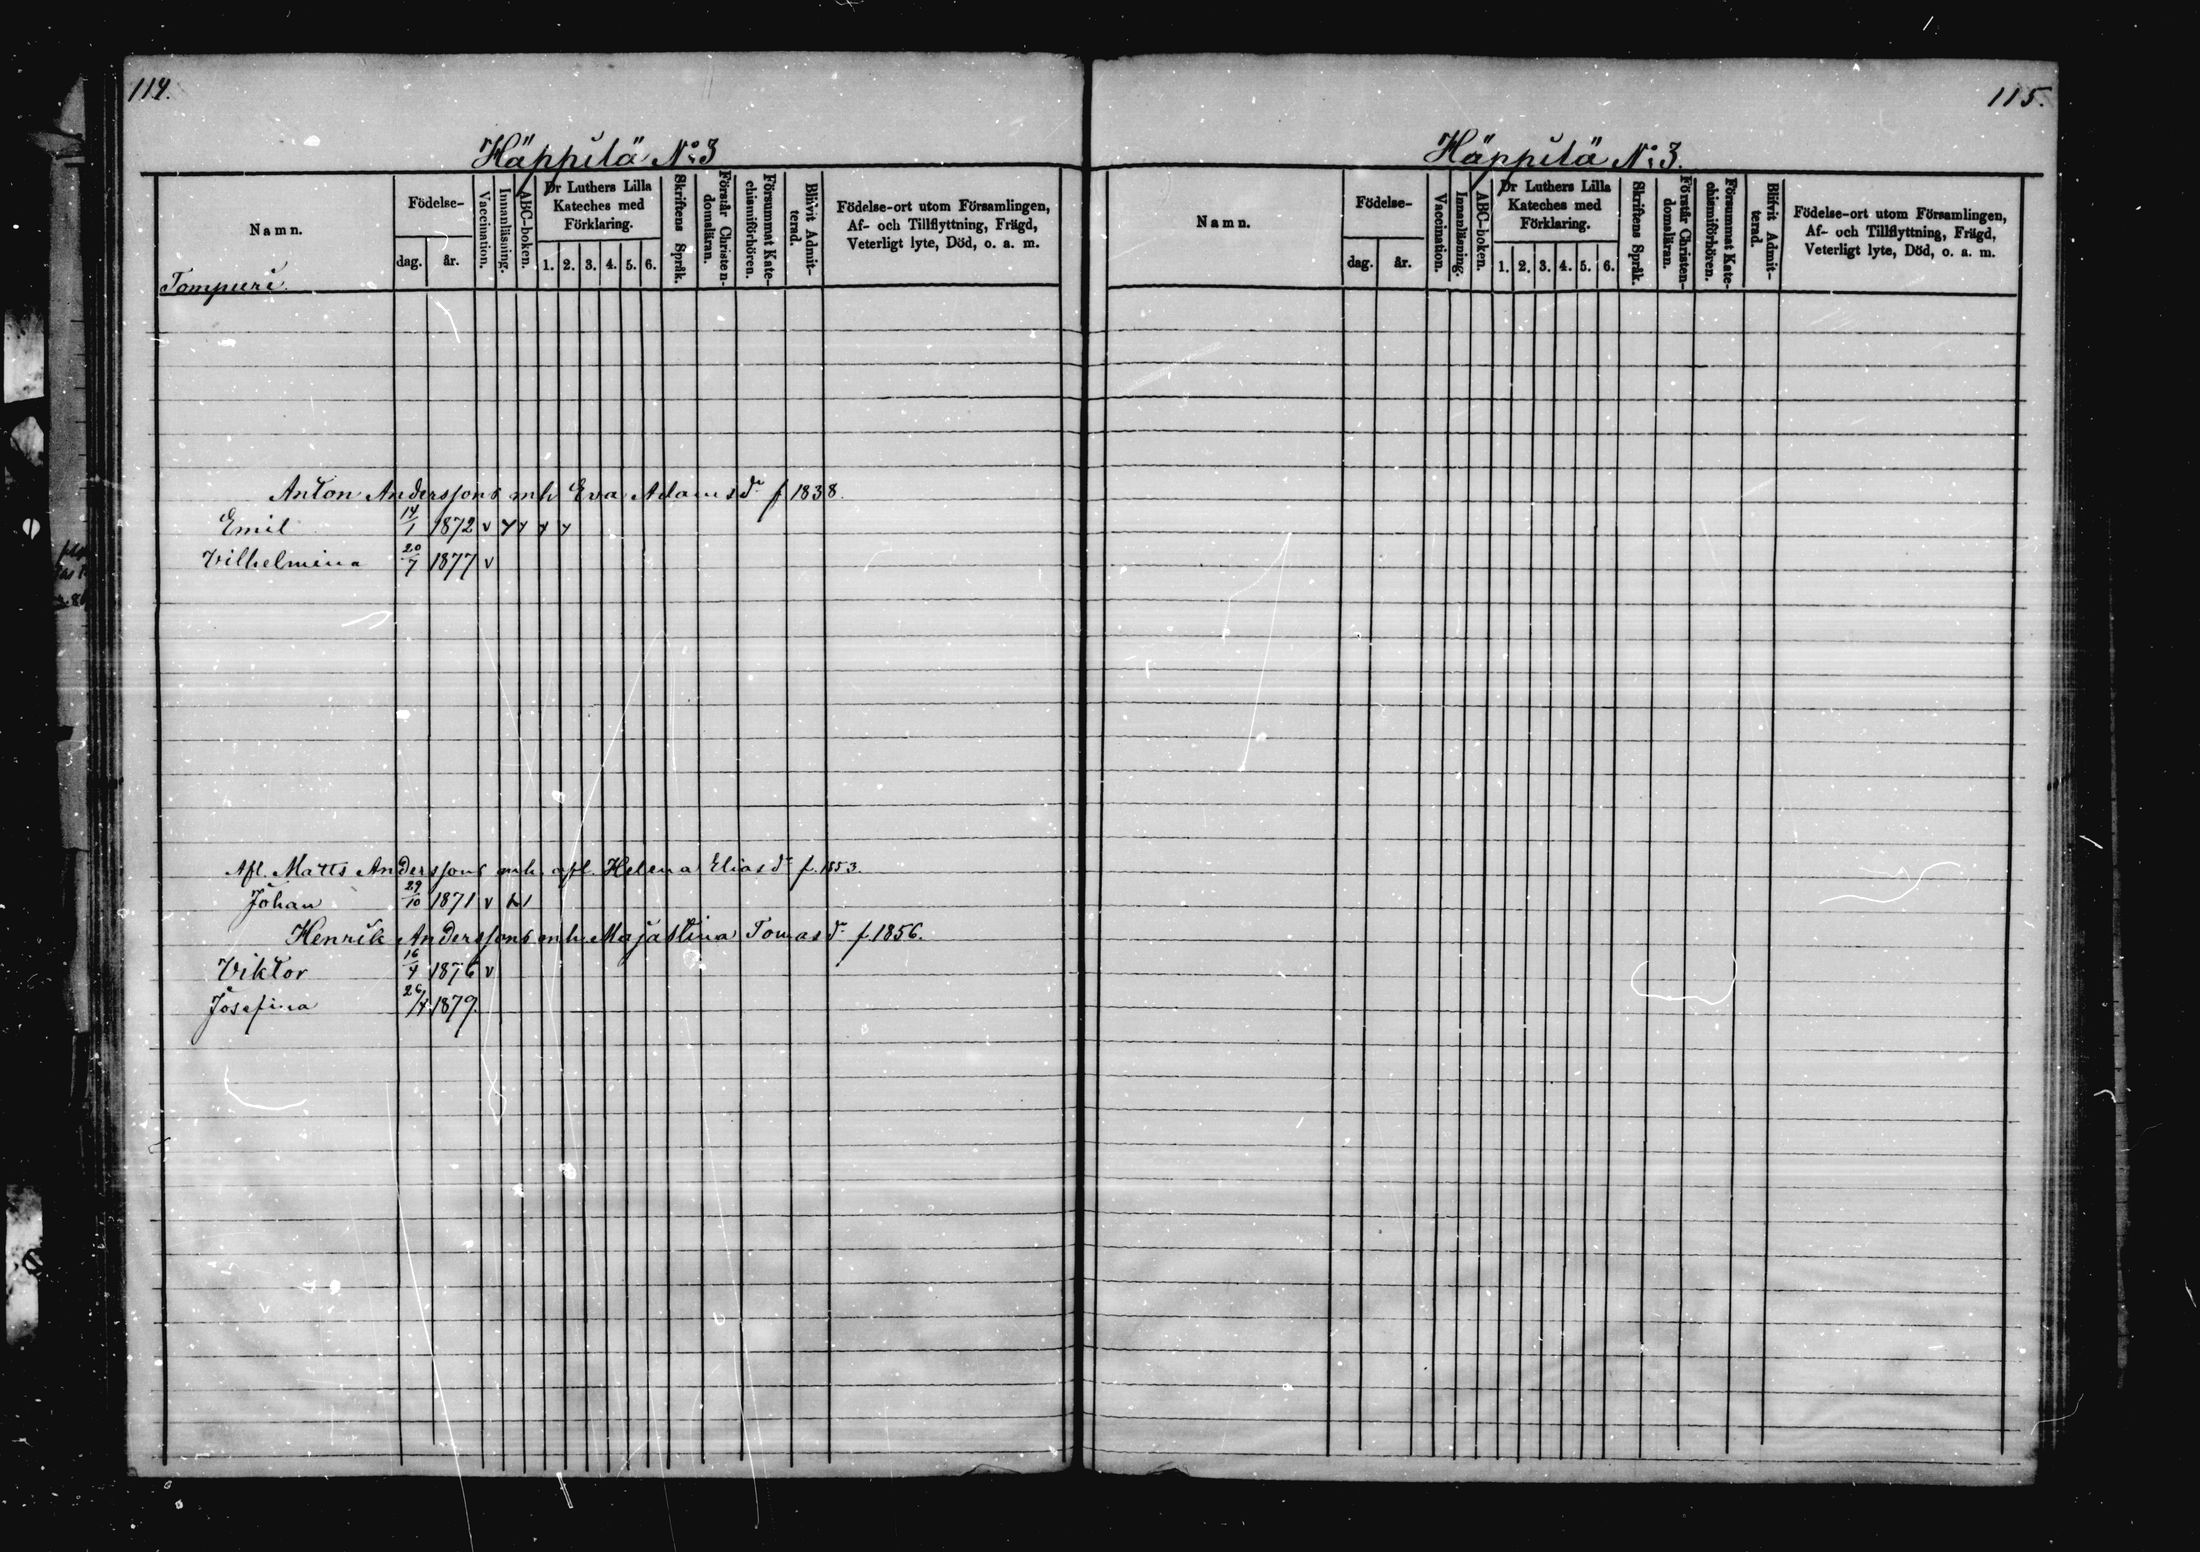 114.
Häppilä No 3
Namn.
Födelse-
dag.
år.
Vaccination.
Innanläsning.
ABC-boken.
Dr Luthers Lilla
Kateches med
Förklaring.
1. 2. 3. 4. 5. 6.
Skriftens Språk.
Förstår Christen-
domsläran.
Försummat Kate-
chismiförhören.
Blifvit Admit-
terad.
Födelse-ort utom Församlingen,
Af- och Tillflyttning, Frägd,
Veterligt lyte, Död, o. a. m.
Tompuri
Anton Anderssons mh Eva Adamsdr f 1838.
Emil 14/1 1872 v
Vilhelmina 20/7 1877 v
Afl. Matts Anderssons mh. afl. Helena Eliasdr f. 1853.
Johan 29/10 1871 v
Henrik Anderssons mh. Majastina Tomasdr f. 1856.
Viktor 16/4 1876 v
Josefina 26/4 1879.
115.
Häppilä No 3.
Namn.
Födelse-
dag.
år.
Vaccination.
Innanläsning.
ABC-boken.
Dr Luthers Lilla
Kateches med
Förklaring.
1. 2. 3. 4. 5. 6.
Skriftens Språk.
Förstår Christen-
domsläran.
Försummat Kate-
chismiförhören.
Blifvit Admit-
terad.
Födelse-ort utom Församlingen,
Af- och Tillflyttning, Frägd,
Veterligt lyte, Död, o. a. m.